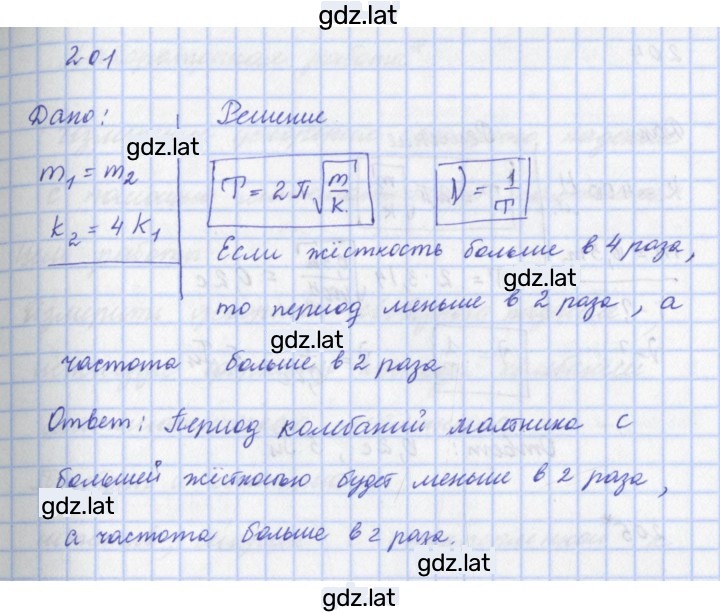 gdz.lat
201
Дано: Решение
gdz.lat
m₁ = m₂
T = 2π√(m/k) ν = 1/T
k₂ = 4 k₁
Если жёсткость больше в 4 раза,
gdz.lat
то период меньше в 2 раза, а
gdz.lat
частота больше в 2 раза
Ответ: Период колебаний маятника с
большей жёсткостью будет меньше в 2 раза,
gdz.lat
а частота больше в 2 раза.
gdz.lat
gdz.lat